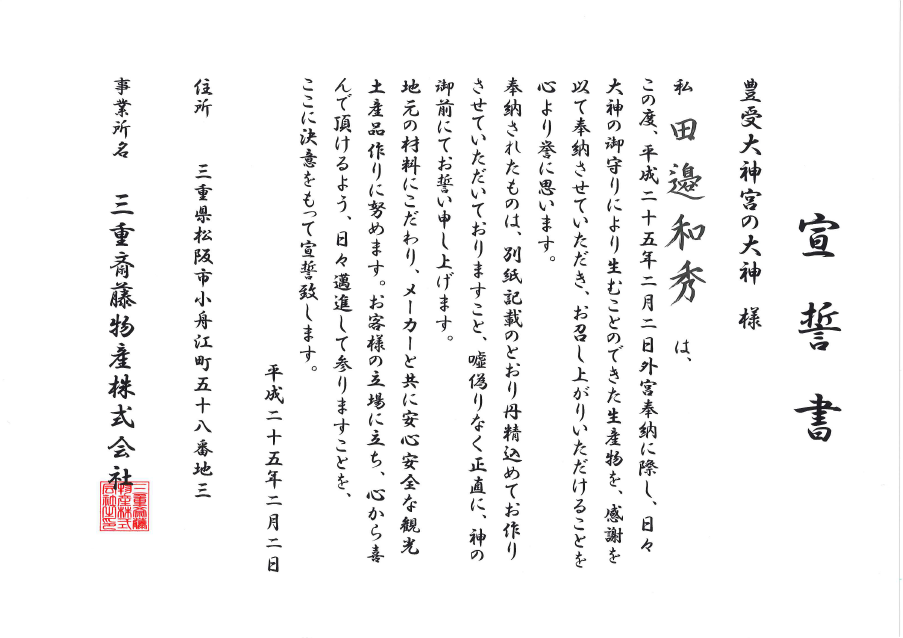 宣誓書
豊受大神宮の大神 様
私 田邊和秀 は、
この度、平成二十五年二月二日外宮奉納に際し、日々
大神の御守りにより生むことのできた生産物を、感謝を
以て奉納させていただき、お召し上がりいただけることを
心より誉に思います。
奉納されたものは、別紙記載のとおり丹精込めてお作り
させていただいておりますこと、嘘偽りなく正直に、神の
御前にてお誓い申し上げます。
地元の材料にこだわり、メーカーと共に安心安全な観光
土産品作りに努めます。お客様の立場に立ち、心から喜
んで頂けるよう、日々邁進して参りますことを、
ここに決意をもって宣誓致します。
平成二十五年二月二日
住所 三重県松阪市小舟江町五十八番地三
事業所名 三重斎藤物産株式会社
三重斎藤
物産株式
会社之印